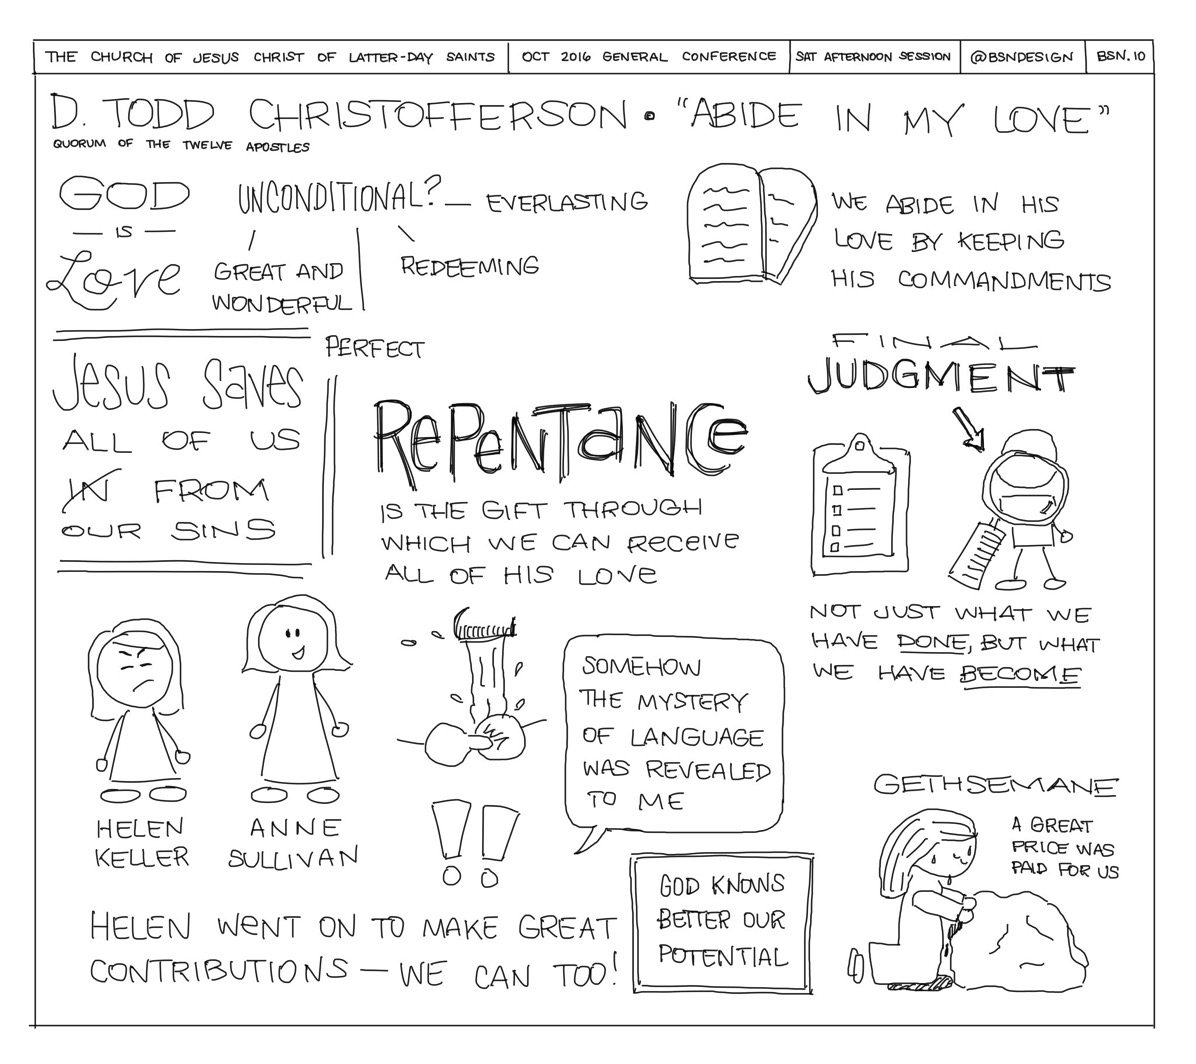 THE CHURCH OF JESUS CHRIST OF LATTER-DAY SAINTS
OCT 2016 GENERAL CONFERENCE
SAT AFTERNOON SESSION
@BSNDESIGN
BSN.10
D. TODD CHRISTOFFERSON • "ABIDE IN MY LOVE"
QUORUM OF THE TWELVE APOSTLES
GOD
— IS —
LOVE
UNCONDITIONAL? — EVERLASTING
GREAT AND
WONDERFUL
REDEEMING
PERFECT
WE ABIDE IN HIS
LOVE BY KEEPING
HIS COMMANDMENTS
JESUS SAVES
ALL OF US
IN FROM
OUR SINS
REPENTANCE
IS THE GIFT THROUGH
WHICH WE CAN RECEIVE
ALL OF HIS LOVE
FINAL
JUDGMENT
NOT JUST WHAT WE
HAVE DONE, BUT WHAT
WE HAVE BECOME
HELEN
KELLER
ANNE
SULLIVAN
!!
SOMEHOW
THE MYSTERY
OF LANGUAGE
WAS REVEALED
TO ME
HELEN WENT ON TO MAKE GREAT
CONTRIBUTIONS — WE CAN TOO!
GOD KNOWS
BETTER OUR
POTENTIAL
GETHSEMANE
A GREAT
PRICE WAS
PAID FOR US